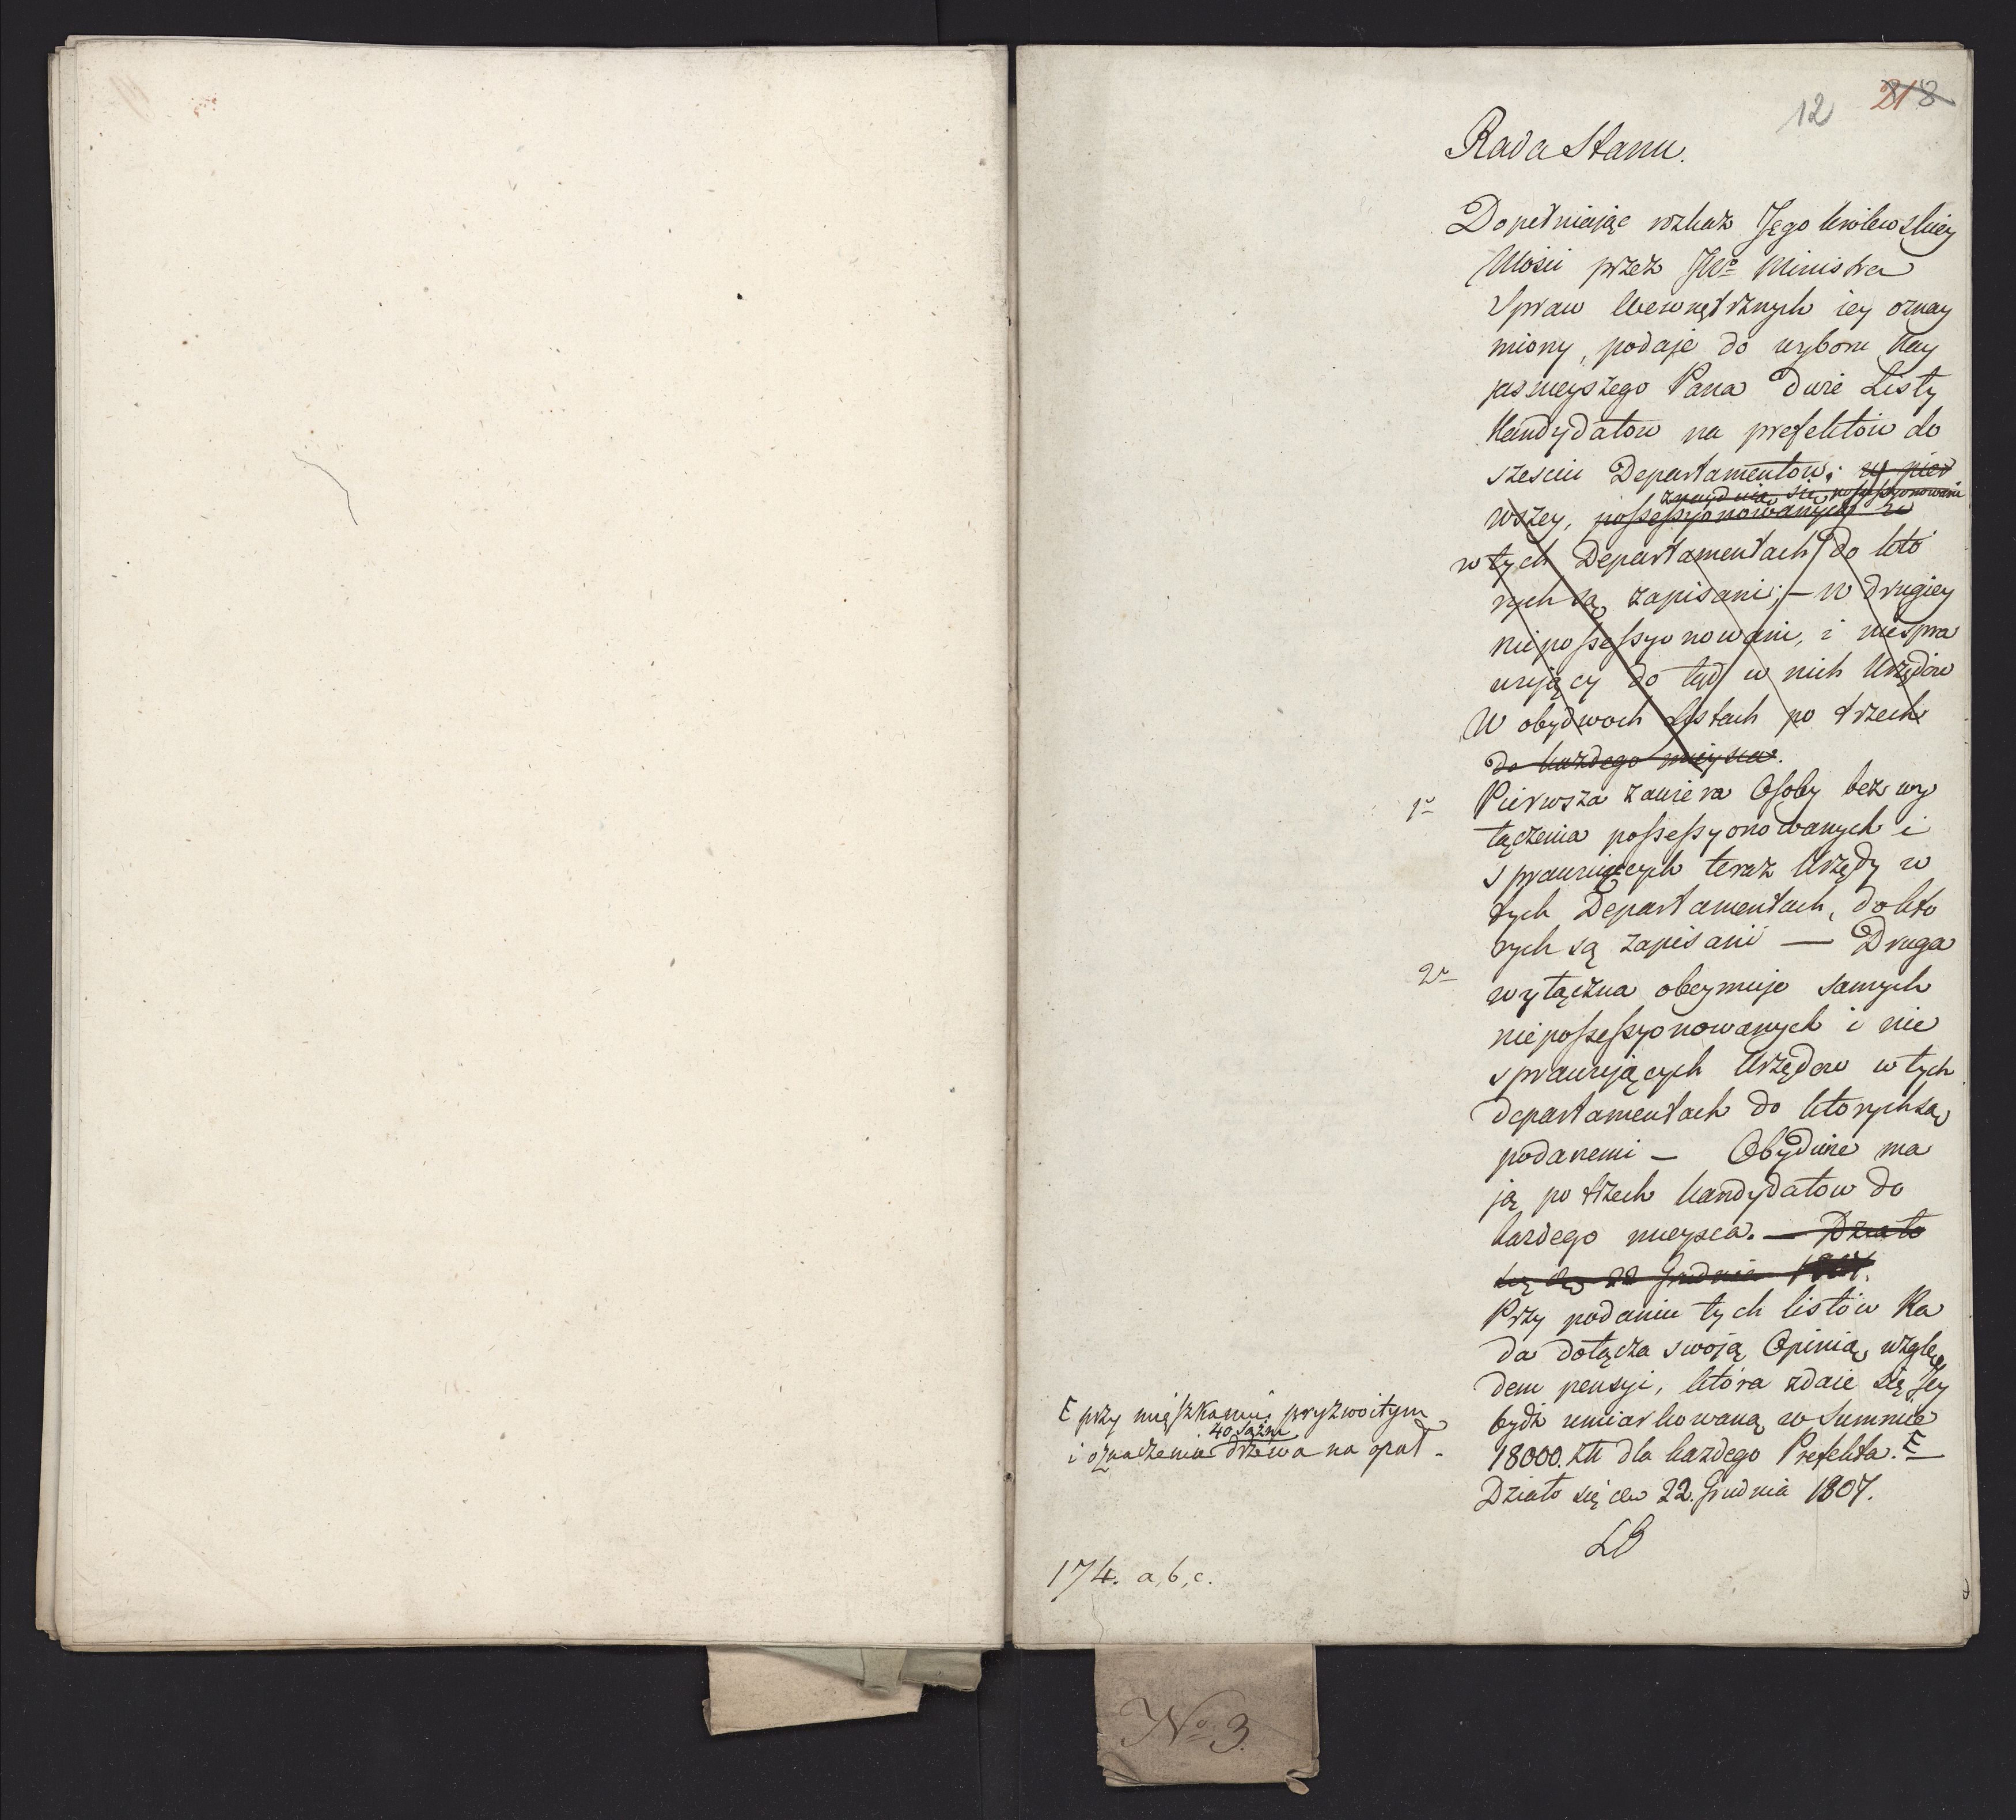 12 218
Rada Stanu.
Dopełniając rozkaz Jego Krolewskiey
Mości przez JWo Ministra
Spraw Wewnętrznych iey oznay
miony, podaje do wyboru Nay
jasneyszego Pana Dwie Listy
Kandydatow na prefektow do
szesciu Departamentow; w pier
znayduią się possessyonowani
wszey, possessyonowanych w
w tych Departamentach do kto
rych są zapisani; — w drugiey
niepossessyonowani, i niespra
wujący do tąd w nich Urzędow
W obydwoch Listach po trzech
do każdego mieysca.
1o Pierwsza zawiera Osoby bez wy
łączenia possessyonowanych i
sprawuiących teraz Urzędy w
tych Departamentach, do kto
rych są zapisani — Druga
2o
wyłączna obeymuje samych
niepossessyonowanych i nie
sprawujących Urzędow w tych
departamentach do ktorych są
podanemi — Obydwie ma
ją po trzech Kandydatow do
kazdego mieysca. — Działo
się dn 22 Grudnia 1807.
Przy podaniu tych listow Ra
da dołącza swoją Opinią wzglę
dem pensyi, ktora zdaie się Jey
bydź umiarkowaną w Summie
18000. Zł dla kazdego Prefekta. E
Działo się dn 22. Grudnia 1807.
LB
E przy mięszkaniu przyzwoitym
40 sążni
i oznaczenia drzewa na opał -
174. a, b, c.
No 3.